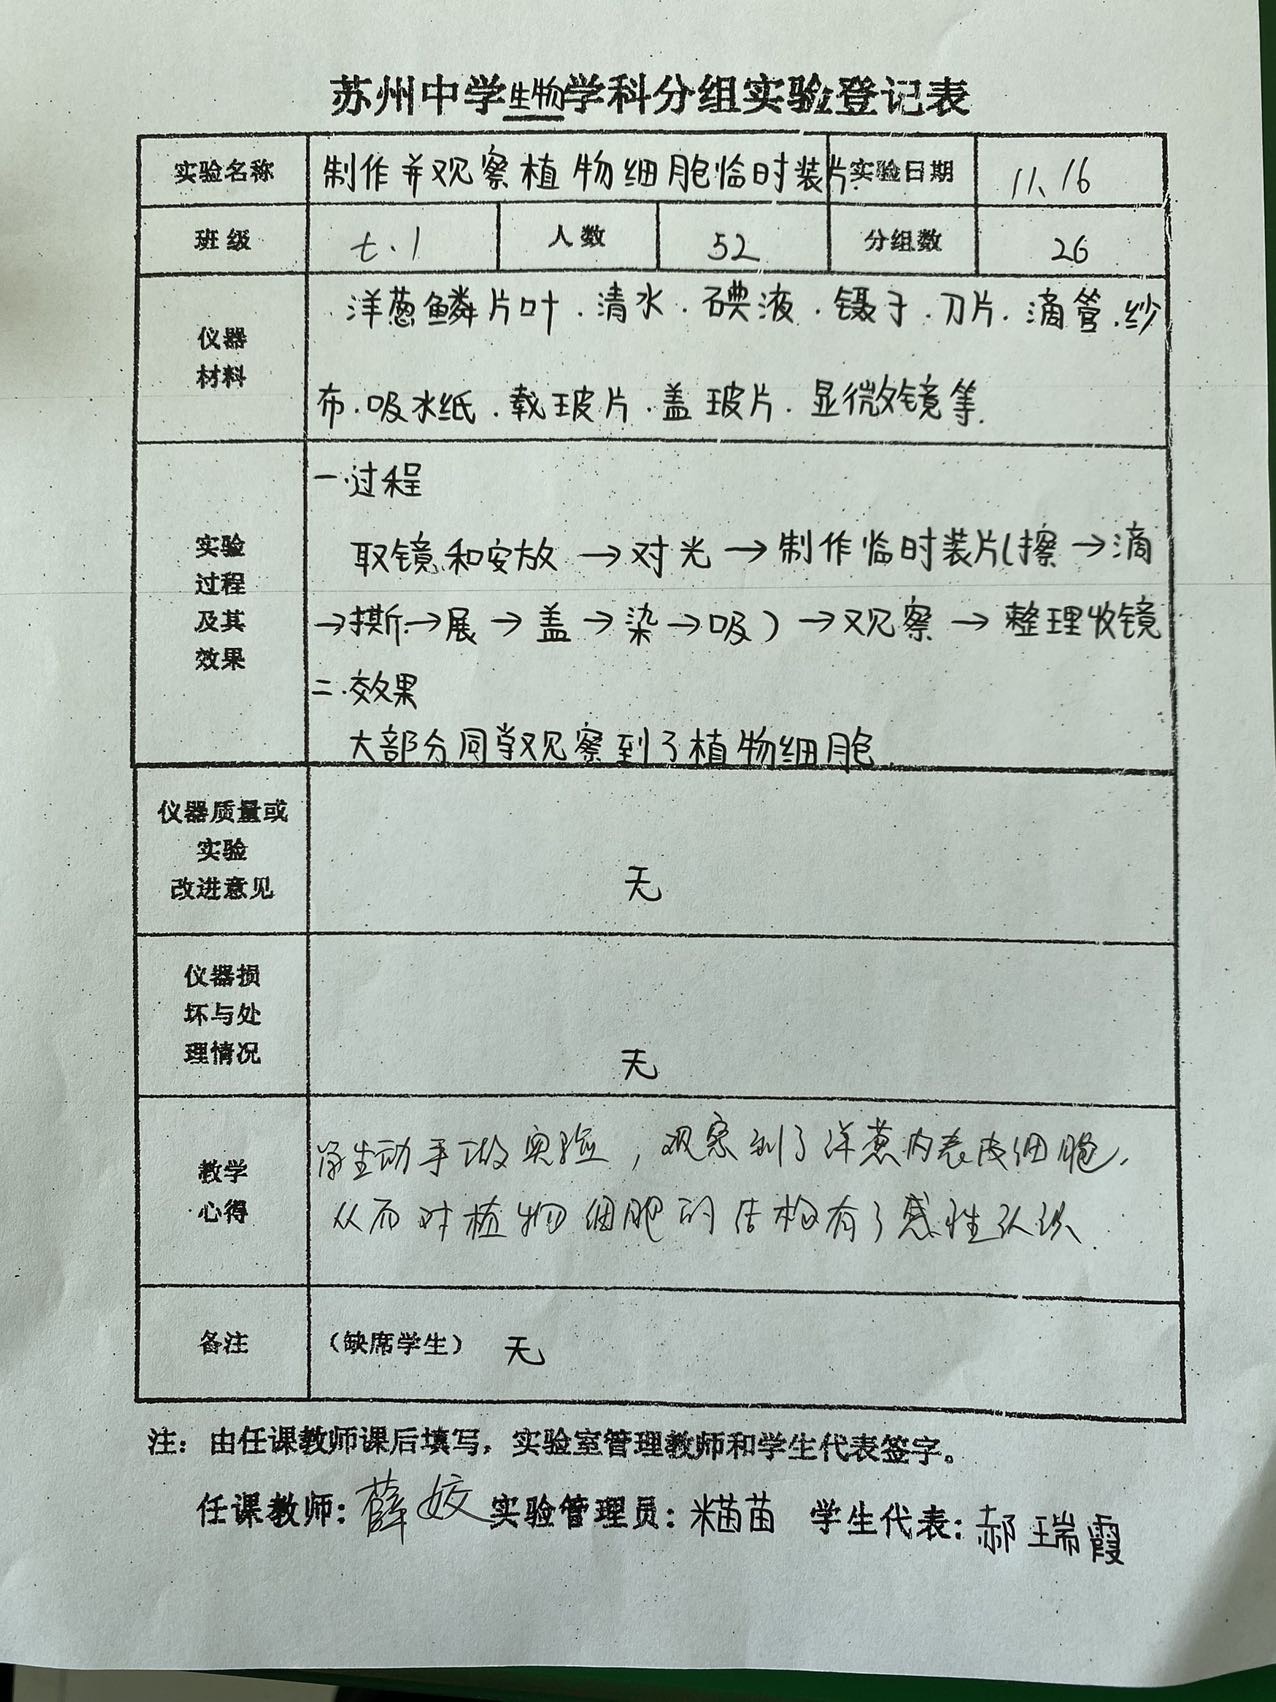 苏州中学生物学科分组实验登记表
实验名称 制作并观察植物细胞临时装片 实验日期 11.16
班级 七.1 人数 52 分组数 26
仪器
材料
洋葱鳞片叶.清水.碘液.镊子.刀片.滴管.纱
布.吸水纸.载玻片.盖玻片.显微镜等.
实验
过程
及其
效果
一.过程
取镜和安放→对光→制作临时装片(擦→滴
→撕→展→盖→染→吸)→观察→整理收镜
二.效果
大部分同学观察到了植物细胞.
仪器质量或
实验
改进意见
无
仪器损
坏与处
理情况
无
教学
心得
学生动手做实验,观察到了洋葱内表皮细胞,
从而对植物细胞的结构有了感性认识.
备注 (缺席学生) 无
注:由任课教师课后填写,实验室管理教师和学生代表签字。
任课教师:薛姣 实验管理员:苗苗 学生代表:郝瑞霞